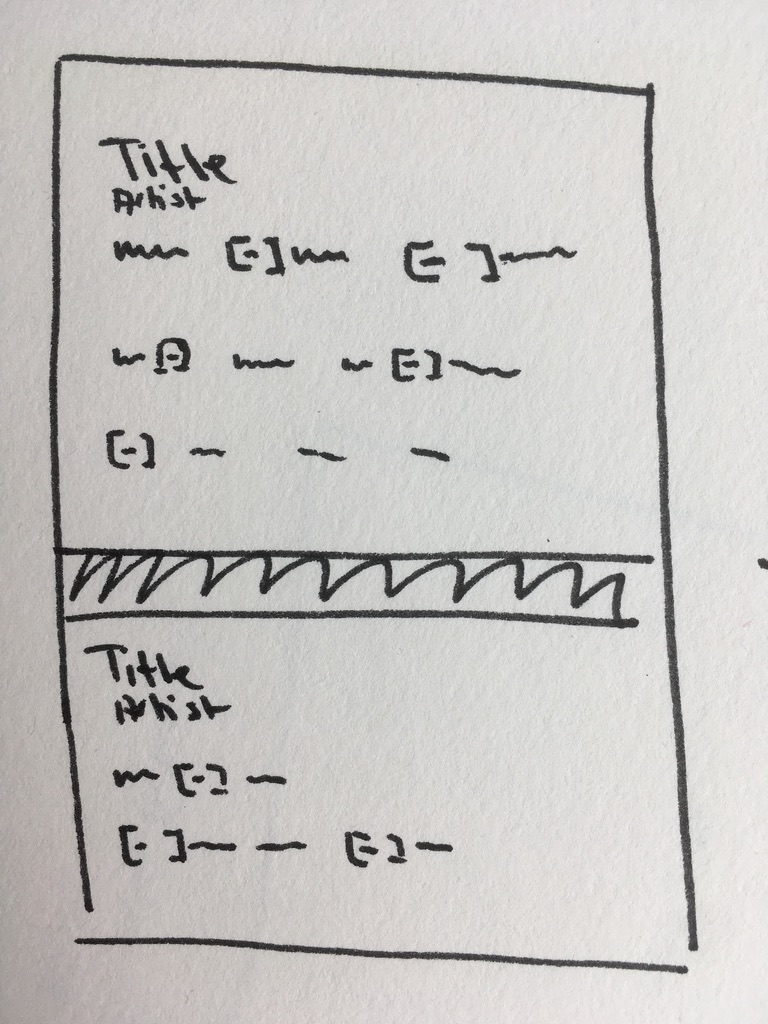 Title
Artist
[-] [-]
[-] [-]
[-] - - -
Title
Artist
[-] -
[-] - - [-] -